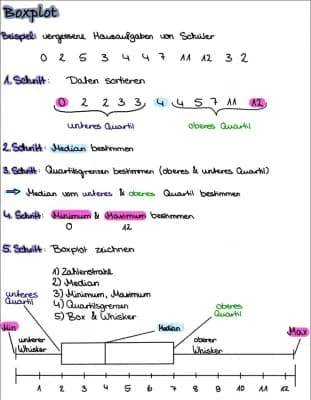 Boxplot
Beispiel: vergessene Hausaufgaben von Schüler
0 2 5 3 4 4 7 11 12 3 2
1. Schritt: Daten sortieren
0 2 2 3 3 4 4 5 7 11 12
unteres Quartil oberes Quartil
2. Schritt: Median bestimmen
3. Schritt: Quartilsgrenzen bestimmen (oberes & unteres Quartil)
⇒ Median vom unteres & oberes Quartil bestimmen
4. Schritt: Minimum & Maximum bestimmen
0 12
5. Schritt: Boxplot zeichnen
1) Zahlenstrahl
2) Median
3) Minimum, Maximum
4) Quartilsgrenzen
5) Box & Whisker
unteres Quartil
oberes Quartil
Min
Median
Max
unterer Whisker
oberer Whisker
1 2 3 4 5 6 7 8 9 10 11 12